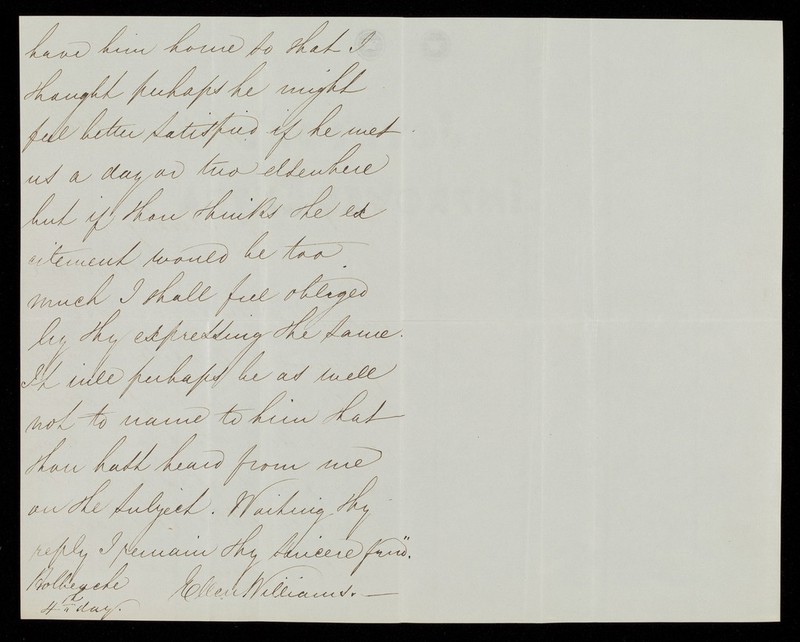 have him home so that I
thought perhaps he might
feel better satisfied if he met
us a day or two elsewhere
but if thou thinks the ex
citement would be too
much I shall feel obliged
by thy expressing the same.
It will perhaps be as well
not to name to him that
thou hast heard from me
on the subject. Waiting thy
reply I remain thy sincere frnd.
Ellen Williams.—
4th day.